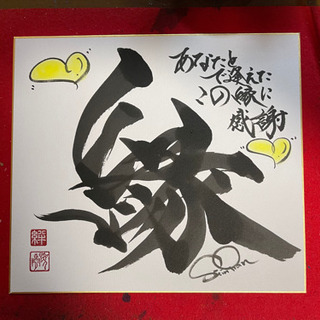 あなたと
で逢えた
この縁に
感謝
縁
絆